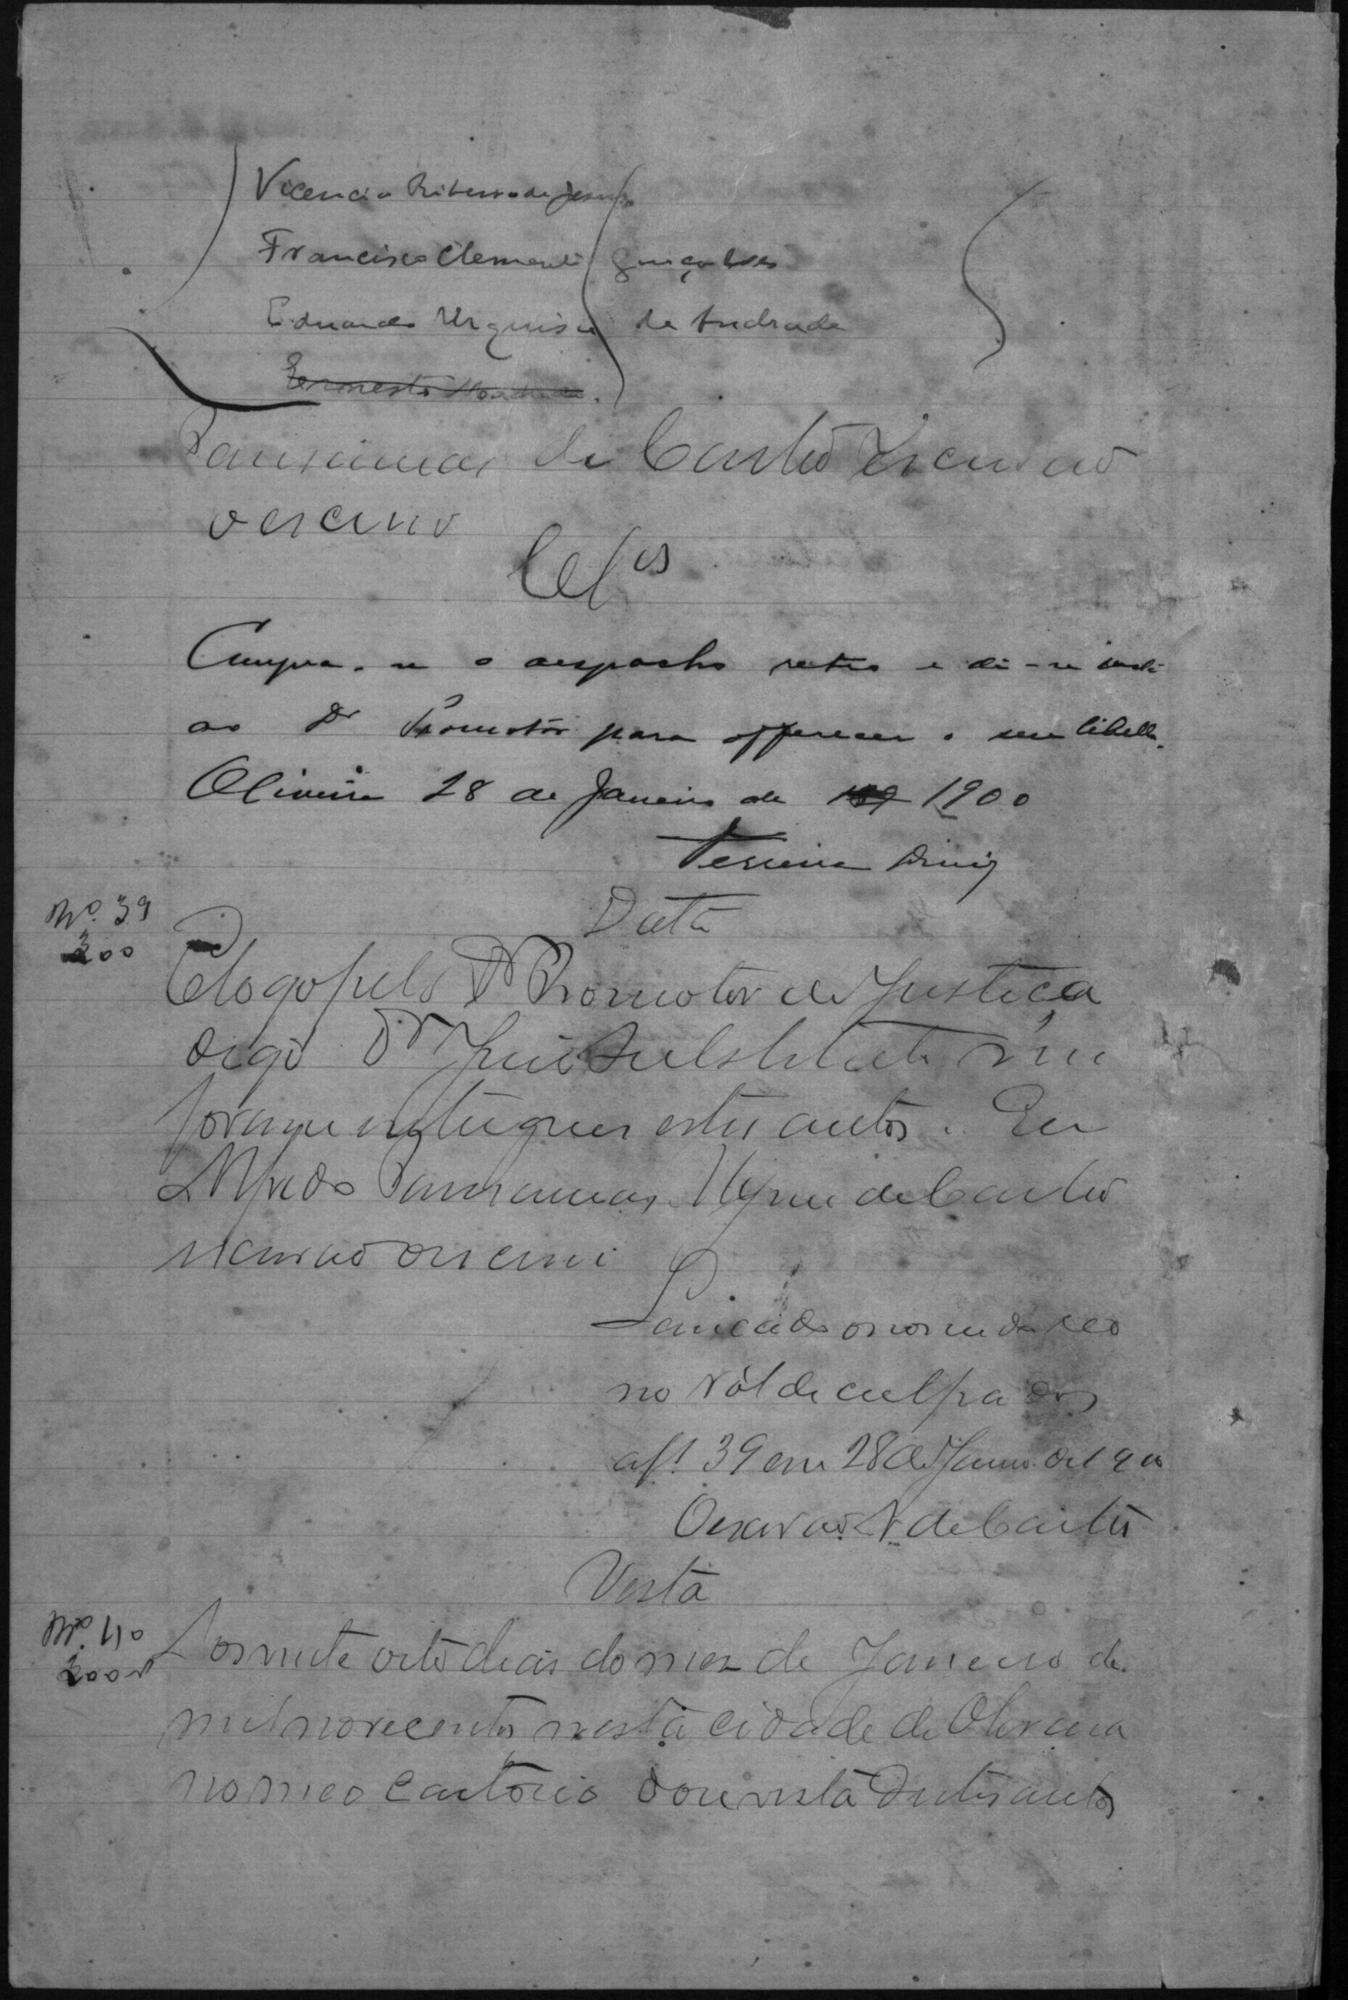 Vicencia Ribeiro de Jesus
Francisco Clemente Gonçalves
Eduardo Urquisa de Andrade
Ernesto
de Castro Escrivão
o escrevi
Cls
Cumpra-se o despacho retro e dê-se vista
ao Dr Promotor para offerecer o seu libello.
Oliveira 28 de Janeiro de 1900
Ferreira Diniz
Data
No. 39
300
E logo pelo Dr Promotor de Justiça
digo Dr Juiz Substituto me
foram entregues estes autos. Eu
Alfredo de Castro
escrivão o escrevi
Lançado o nome do reo
no ról de culpados
a fl 39 em 28 de Janro de 1900
O escrivão A. de Castro
Vista
No. 40
200
Aos vinte oito dias do mez de Janeiro de
mil novecentos nesta cidade de Oliveira
no meo Cartorio dou vista destes autos